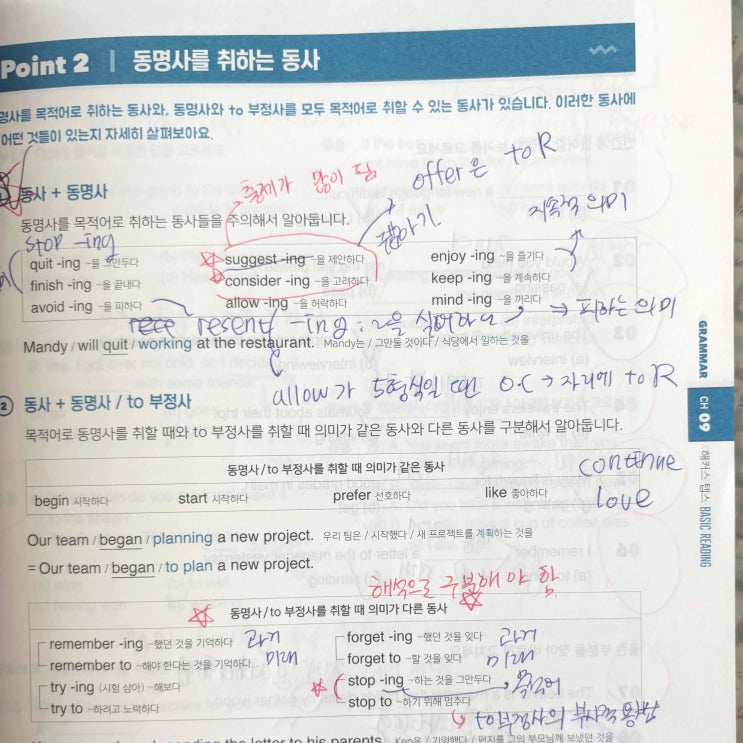 Point 2 | 동명사를 취하는 동사
명사를 목적어로 취하는 동사와, 동명사와 to 부정사를 모두 목적어로 취할 수 있는 동사가 있습니다. 이러한 동사에
어떤 것들이 있는지 자세히 살펴보아요.
출제가 많이 됨
offer은 to R
1 동사 + 동명사
동명사를 목적어로 취하는 동사들을 주의해서 알아둡니다.
지속적 의미
stop -ing
quit -ing ~을 그만두다 suggest -ing ~을 제안하다 enjoy -ing ~을 즐기다
finish -ing ~을 끝내다 consider -ing ~을 고려하다 keep -ing ~을 계속하다
avoid -ing ~을 피하다 allow -ing ~을 허락하다 mind -ing ~을 꺼리다
resent -ing : ~을 → 피하는 의미
Mandy / will quit / working at the restaurant. Mandy는 / 그만둘 것이다 / 식당에서 일하는 것을
allow가 5형식일 땐 O.C → 자리에 to R
GRAMMAR
CH 09
해커스 텝스 BASIC READING
2 동사 + 동명사 / to 부정사
목적어로 동명사를 취할 때와 to 부정사를 취할 때 의미가 같은 동사와 다른 동사를 구분해서 알아둡니다.
동명사 / to 부정사를 취할 때 의미가 같은 동사
continue
begin 시작하다 start 시작하다 prefer 선호하다 like 좋아하다
love
Our team / began / planning a new project. 우리 팀은 / 시작했다 / 새 프로젝트를 계획하는 것을
= Our team / began / to plan a new project.
해석으로 구분해야 함
동명사 / to 부정사를 취할 때 의미가 다른 동사
remember -ing ~했던 것을 기억하다 과거 forget -ing ~했던 것을 잊다 과거
remember to ~해야 한다는 것을 기억하다 미래 forget to ~할 것을 잊다 미래
try -ing (시험 삼아) ~해보다 stop -ing ~하는 것을 그만두다 목적어
try to ~하려고 노력하다 stop to ~하기 위해 멈추다
to부정사의 부사적 용법
the letter to his parents. Ken은 / 기억했다 / 편지를 그의 부모님께 보냈던 것을